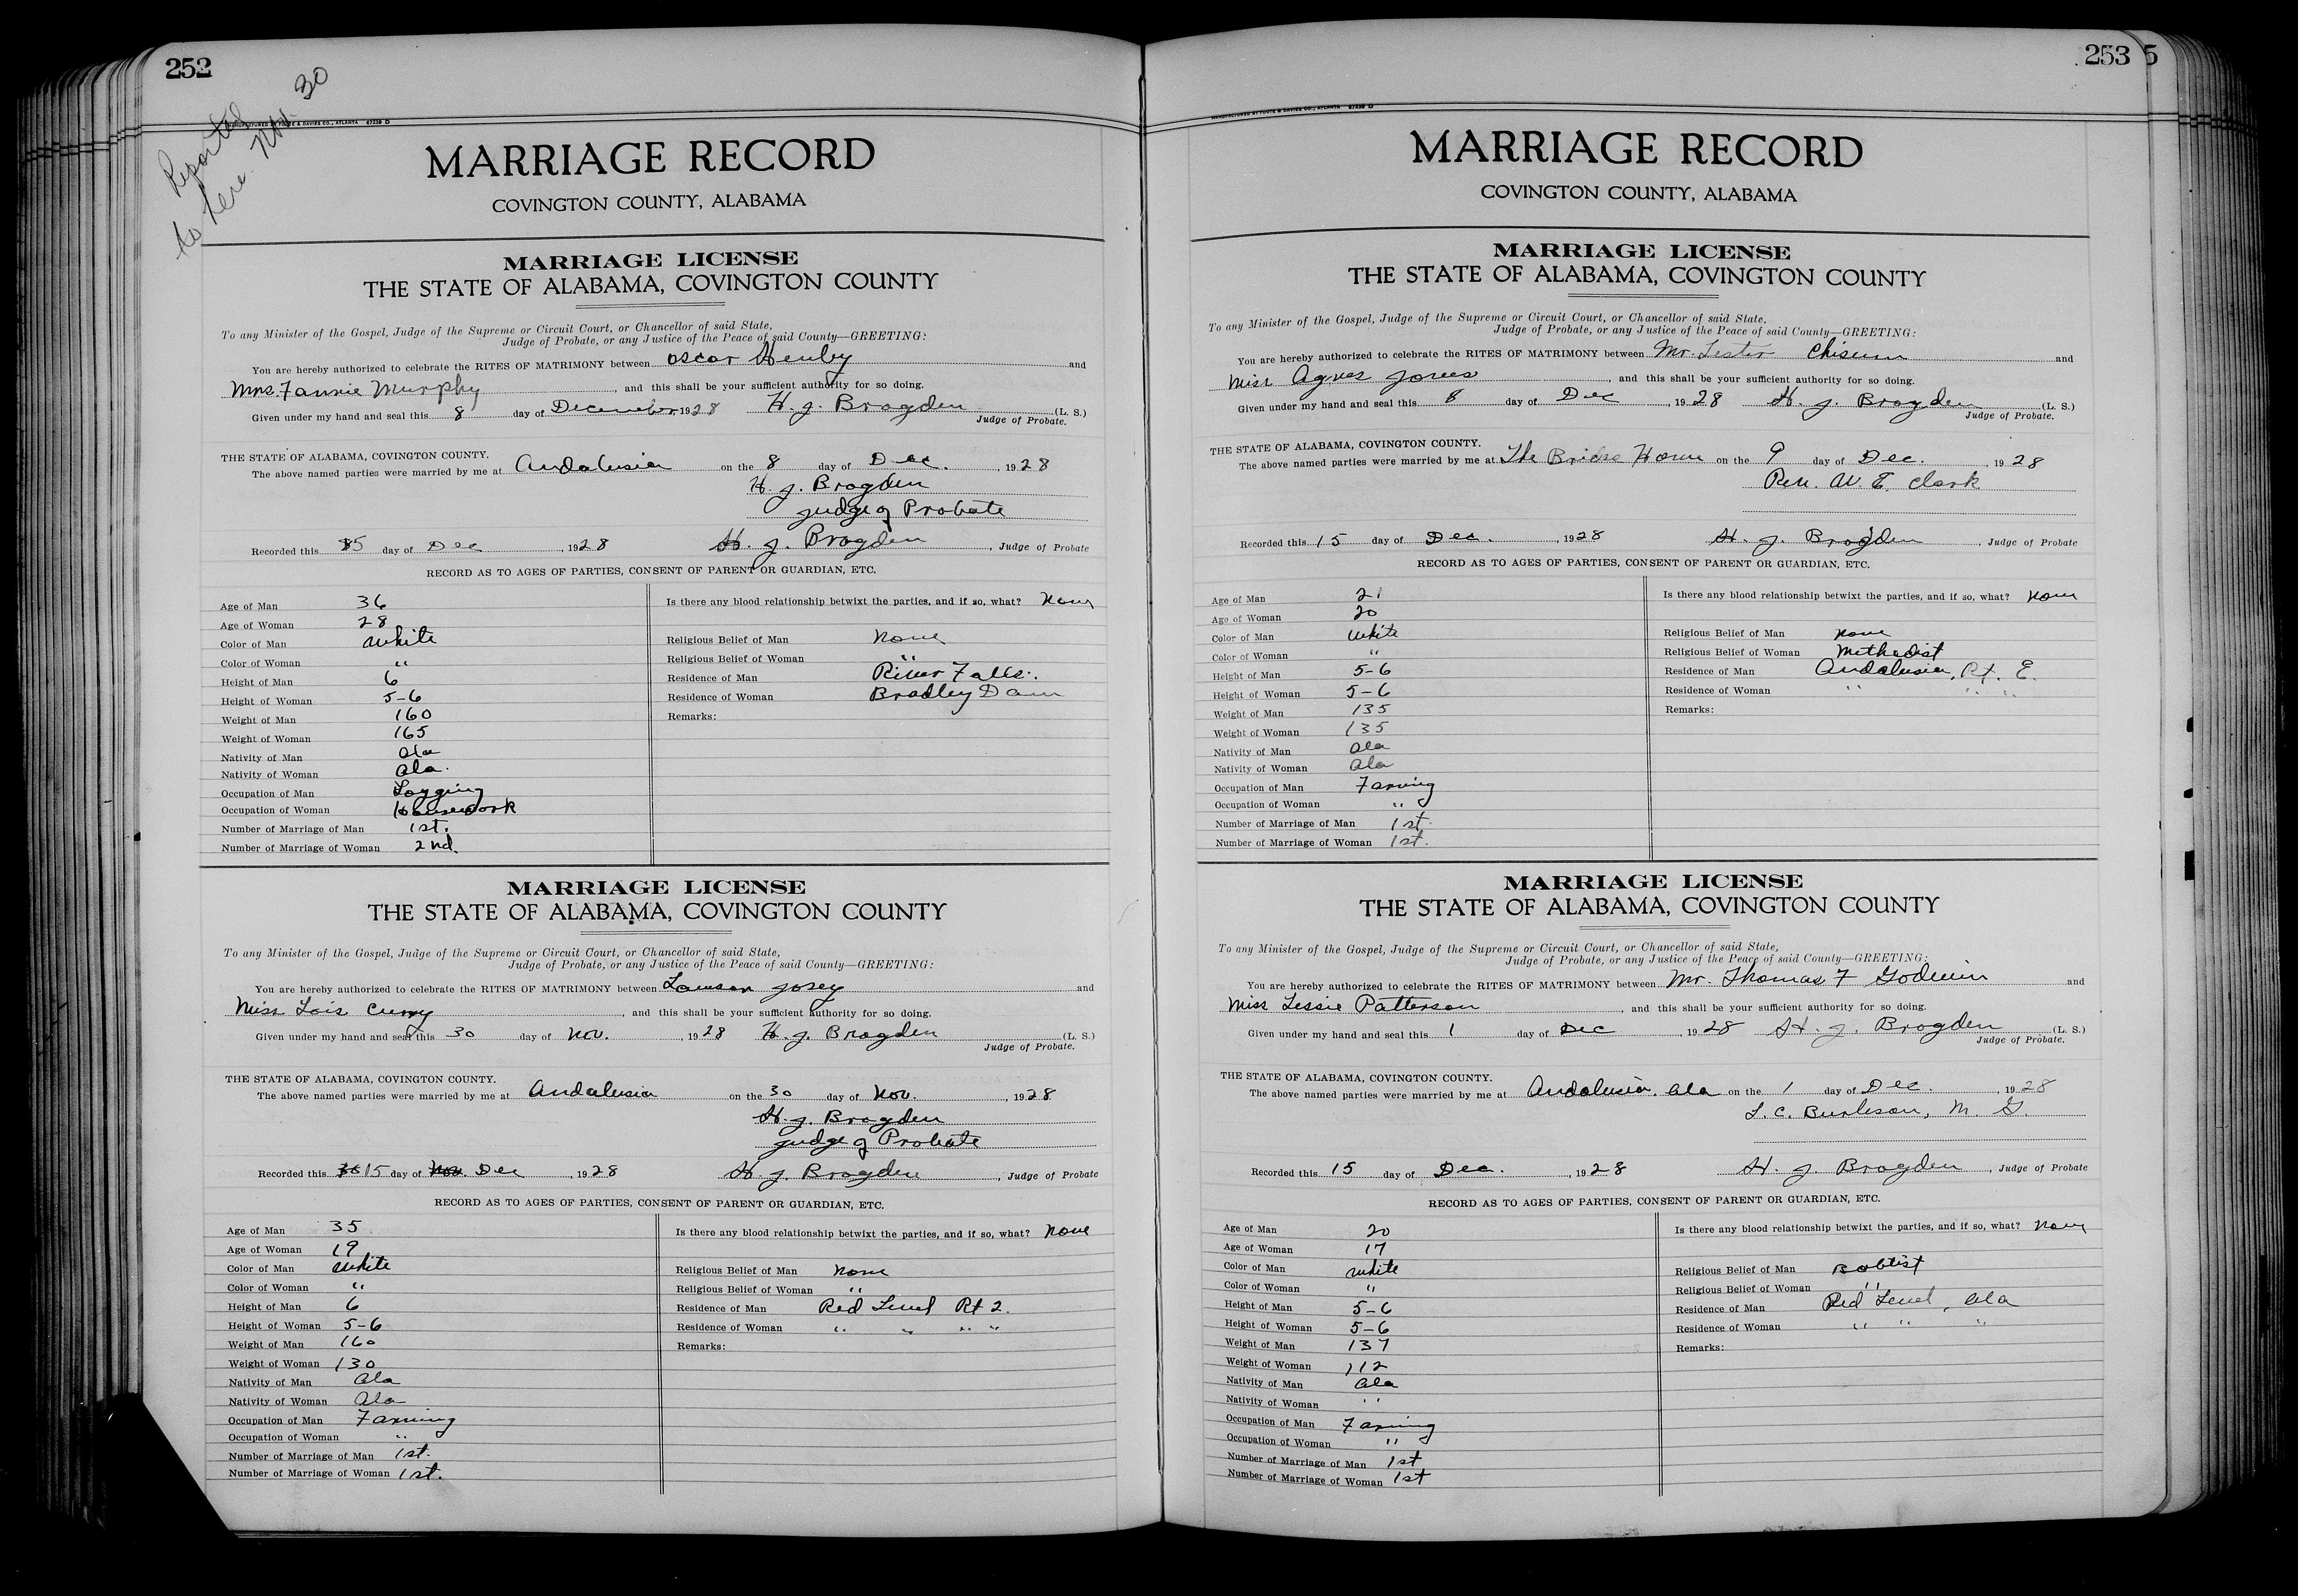 252
Reported
to here Nov. 30
MANUFACTURED BY FOOTE & DAVIES CO., ATLANTA 67239 D
MARRIAGE RECORD
COVINGTON COUNTY, ALABAMA
MARRIAGE LICENSE
THE STATE OF ALABAMA, COVINGTON COUNTY
To any Minister of the Gospel, Judge of the Supreme or Circuit Court, or Chancellor of said State,
Judge of Probate, or any Justice of the Peace of said County—GREETING:
You are hereby authorized to celebrate the RITES OF MATRIMONY between Oscar Henley and
Mrs. Fannie Murphy, and this shall be your sufficient authority for so doing.
Given under my hand and seal this 8 day of December 1928 H. J. Brogden (L. S.)
Judge of Probate.
THE STATE OF ALABAMA, COVINGTON COUNTY.
The above named parties were married by me at Andalusia on the 8 day of Dec. , 1928
H. J. Brogden
Judge of Probate
Recorded this 15 day of Dec , 1928 H. J. Brogden, Judge of Probate
RECORD AS TO AGES OF PARTIES, CONSENT OF PARENT OR GUARDIAN, ETC.
Age of Man 36
Age of Woman 28
Color of Man White
Color of Woman "
Height of Man 6
Height of Woman 5-6
Weight of Man 160
Weight of Woman 165
Nativity of Man Ala
Nativity of Woman Ala.
Occupation of Man Logging
Occupation of Woman Housework
Number of Marriage of Man 1st.
Number of Marriage of Woman 2nd.
Is there any blood relationship betwixt the parties, and if so, what? None
Religious Belief of Man None
Religious Belief of Woman "
Residence of Man River Falls.
Residence of Woman Bradley Dam
Remarks:
MARRIAGE LICENSE
THE STATE OF ALABAMA, COVINGTON COUNTY
To any Minister of the Gospel, Judge of the Supreme or Circuit Court, or Chancellor of said State,
Judge of Probate, or any Justice of the Peace of said County—GREETING:
You are hereby authorized to celebrate the RITES OF MATRIMONY between Lawson Josey and
Miss Lois Curry, and this shall be your sufficient authority for so doing.
Given under my hand and seal this 30 day of Nov. , 1928 H. J. Brogden (L. S.)
Judge of Probate.
THE STATE OF ALABAMA, COVINGTON COUNTY.
The above named parties were married by me at Andalusia on the 30 day of Nov. , 1928
H. J. Brogden
Judge of Probate
Recorded this 30 15 day of Nov. Dec , 1928 H. J. Brogden, Judge of Probate
RECORD AS TO AGES OF PARTIES, CONSENT OF PARENT OR GUARDIAN, ETC.
Age of Man 35
Age of Woman 19
Color of Man White
Color of Woman "
Height of Man 6
Height of Woman 5-6
Weight of Man 160
Weight of Woman 130
Nativity of Man Ala
Nativity of Woman Ala
Occupation of Man Farming
Occupation of Woman "
Number of Marriage of Man 1st.
Number of Marriage of Woman 1st.
Is there any blood relationship betwixt the parties, and if so, what? None
Religious Belief of Man None
Religious Belief of Woman "
Residence of Man Red Level Rt 2.
Residence of Woman " " " "
Remarks:
253 5
MANUFACTURED BY FOOTE & DAVIES CO., ATLANTA 67239 D
MARRIAGE RECORD
COVINGTON COUNTY, ALABAMA
MARRIAGE LICENSE
THE STATE OF ALABAMA, COVINGTON COUNTY
To any Minister of the Gospel, Judge of the Supreme or Circuit Court, or Chancellor of said State,
Judge of Probate, or any Justice of the Peace of said County—GREETING:
You are hereby authorized to celebrate the RITES OF MATRIMONY between Mr. Lester Chisum and
Miss Agnes Jones, and this shall be your sufficient authority for so doing.
Given under my hand and seal this 8 day of Dec , 1928 H. J. Brogden (L. S.)
Judge of Probate.
THE STATE OF ALABAMA, COVINGTON COUNTY.
The above named parties were married by me at The Brides Home on the 9 day of Dec. , 1928
Rev. W. E. Clark
Recorded this 15 day of Dec. , 1928 H. J. Brogden, Judge of Probate
RECORD AS TO AGES OF PARTIES, CONSENT OF PARENT OR GUARDIAN, ETC.
Age of Man 21
Age of Woman 20
Color of Man White
Color of Woman "
Height of Man 5-6
Height of Woman 5-6
Weight of Man 135
Weight of Woman 135
Nativity of Man Ala
Nativity of Woman Ala
Occupation of Man Farming
Occupation of Woman "
Number of Marriage of Man 1st.
Number of Marriage of Woman 1st.
Is there any blood relationship betwixt the parties, and if so, what? None
Religious Belief of Man None
Religious Belief of Woman Methodist
Residence of Man Andalusia, Rt. E.
Residence of Woman " " "
Remarks:
MARRIAGE LICENSE
THE STATE OF ALABAMA, COVINGTON COUNTY
To any Minister of the Gospel, Judge of the Supreme or Circuit Court, or Chancellor of said State,
Judge of Probate, or any Justice of the Peace of said County—GREETING:
You are hereby authorized to celebrate the RITES OF MATRIMONY between Mr. Thomas F Godwin and
Miss Lessie Patterson, and this shall be your sufficient authority for so doing.
Given under my hand and seal this 1 day of Dec , 1928 H. J. Brogden (L. S.)
Judge of Probate.
THE STATE OF ALABAMA, COVINGTON COUNTY.
The above named parties were married by me at Andalusia, Ala on the 1 day of Dec. , 1928
L. C. Burleson, M. G
Recorded this 15 day of Dec. , 1928 H. J. Brogden, Judge of Probate
RECORD AS TO AGES OF PARTIES, CONSENT OF PARENT OR GUARDIAN, ETC.
Age of Man 20
Age of Woman 17
Color of Man White
Color of Woman "
Height of Man 5-6
Height of Woman 5-6
Weight of Man 137
Weight of Woman 112
Nativity of Man Ala
Nativity of Woman "
Occupation of Man Farming
Occupation of Woman "
Number of Marriage of Man 1st
Number of Marriage of Woman 1st
Is there any blood relationship betwixt the parties, and if so, what? None
Religious Belief of Man Babtist
Religious Belief of Woman "
Residence of Man Red Level, Ala
Residence of Woman " " "
Remarks: